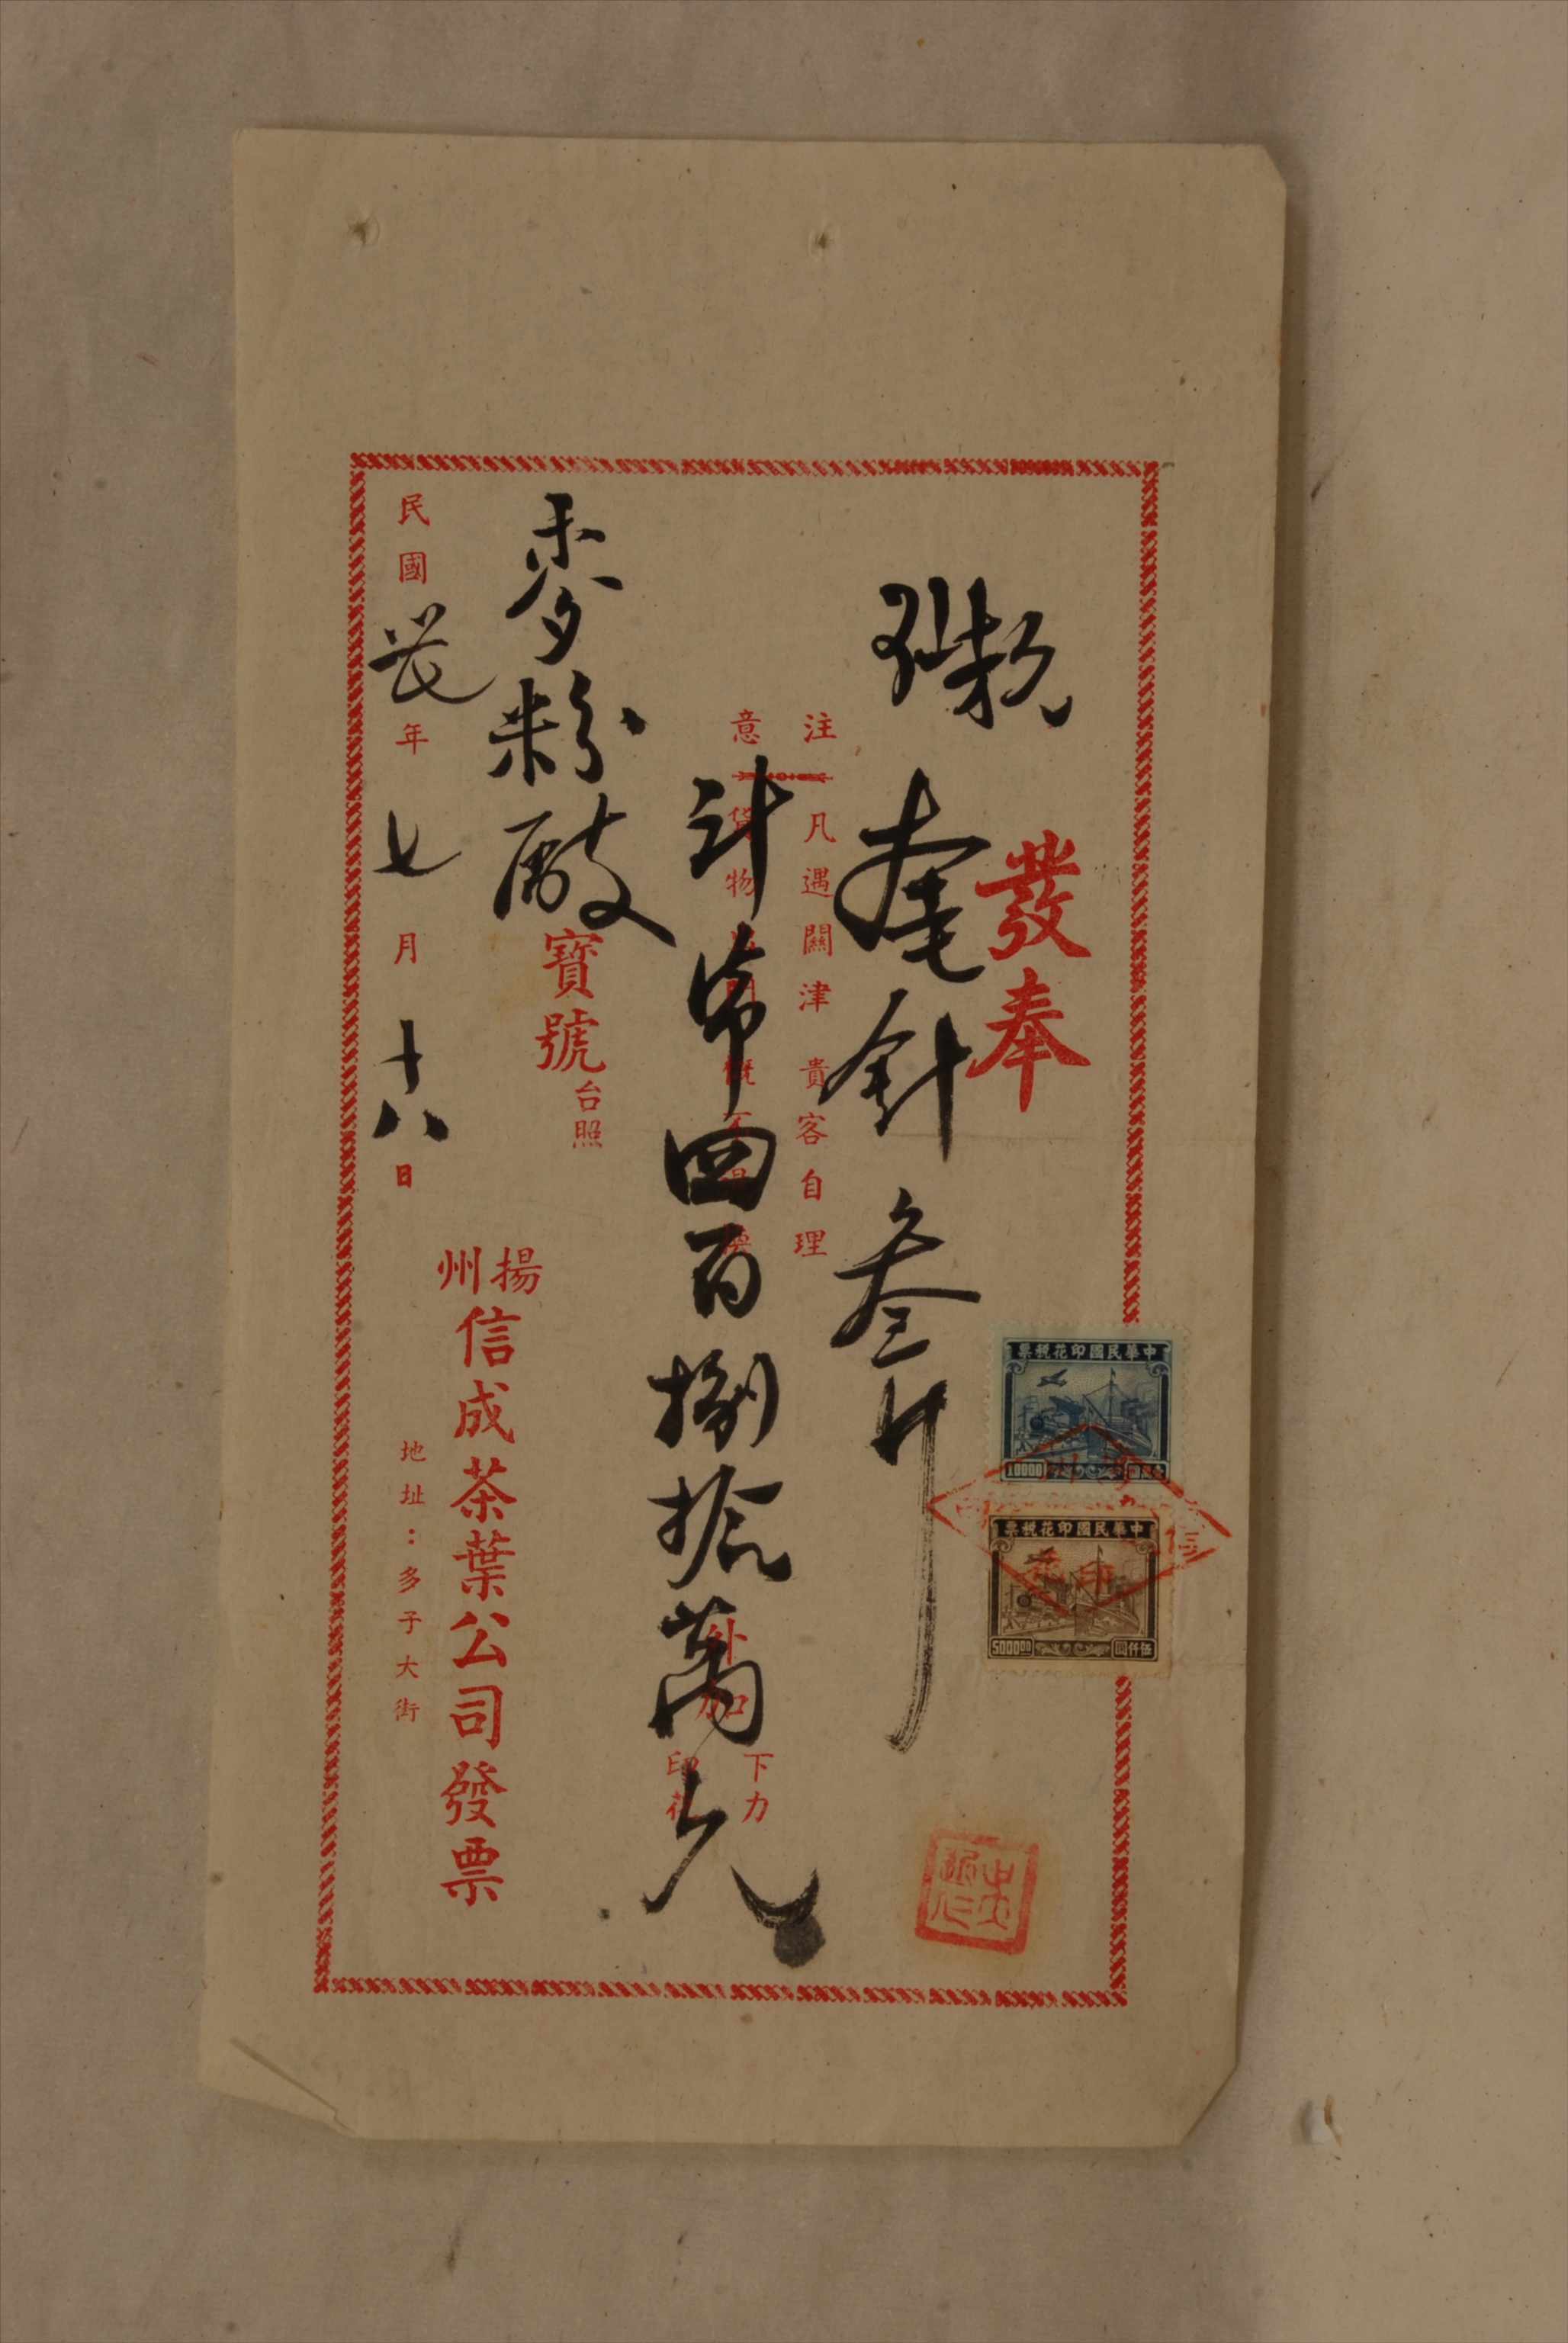 發奉
針 叁斤
注意
凡遇關津貴客自理
貨物出門概不退換
計幣四百捌拾萬元
外加 下力 印花
麥粉廠寶號台照
揚州信成茶葉公司發票
地址：多子大街
民國卅七年七月十八日
中華民國印花稅票
10000
中華民國印花稅票
5000.00 伍仟圓
印花